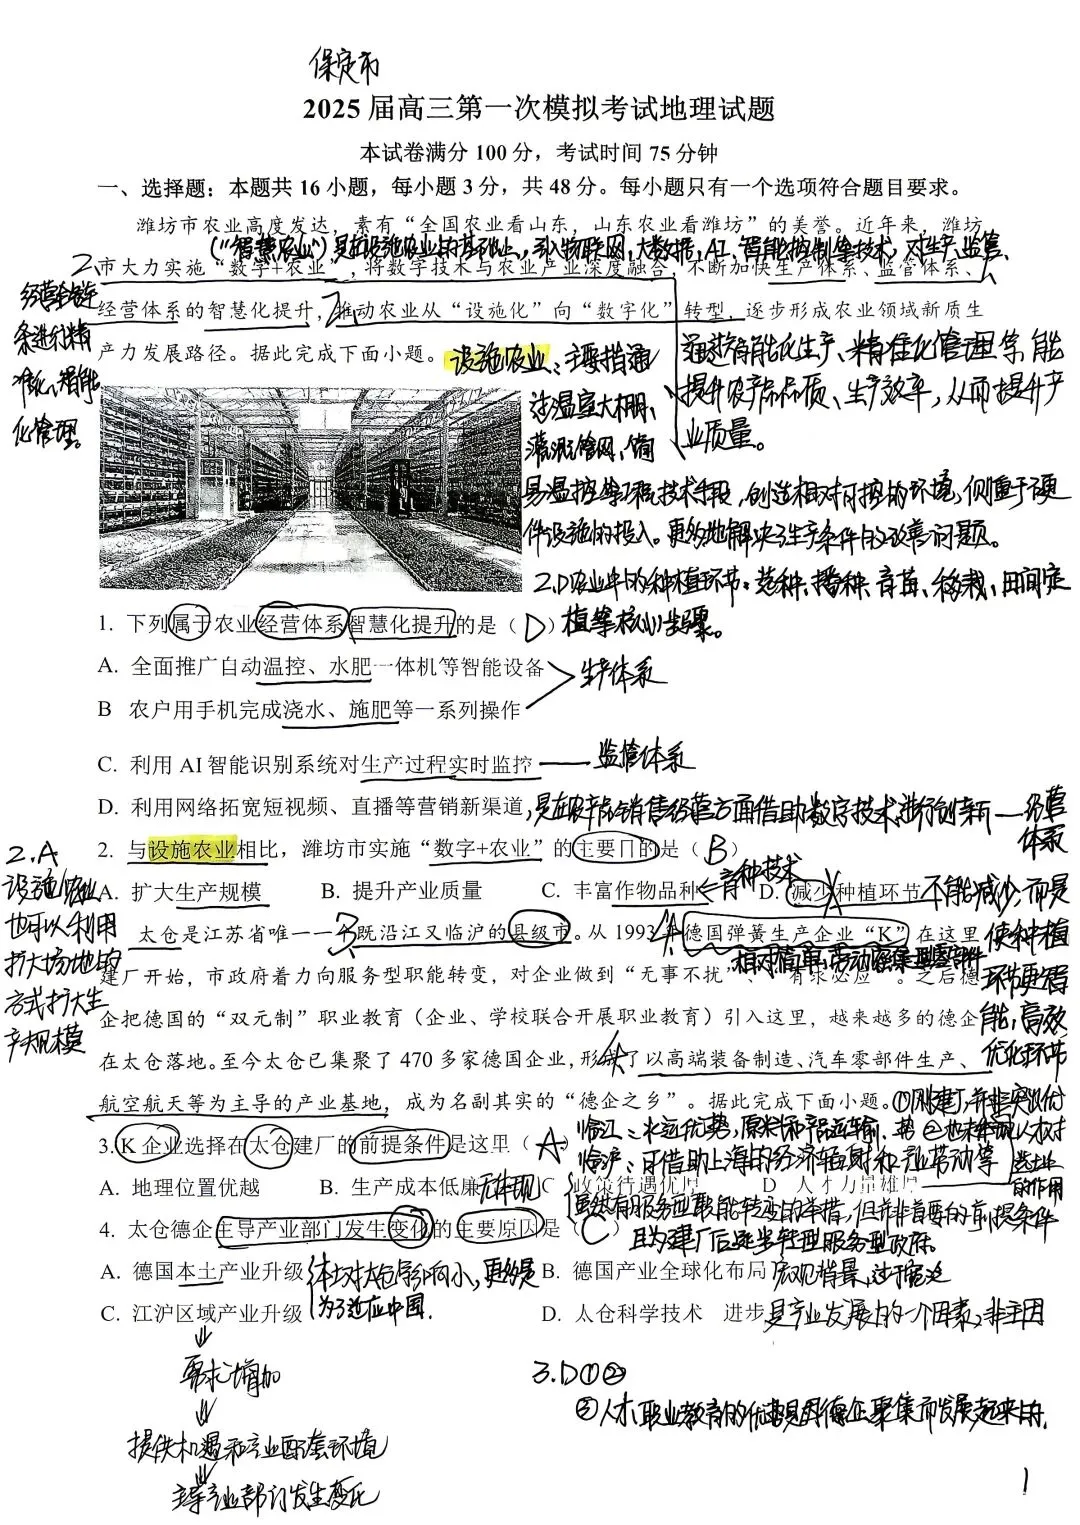 保定市
2025 届高三第一次模拟考试地理试题
本试卷满分 100 分，考试时间 75 分钟
一、选择题：本题共 16 小题，每小题 3 分，共 48 分。每小题只有一个选项符合题目要求。
潍坊市农业高度发达，素有“全国农业看山东，山东农业看潍坊”的美誉。近年来，潍坊
(“智慧农业”)是在设施农业的基础上，引入物联网，大数据，AI、智能控制等技术，对生产、监管、
市大力实施“数字+农业”，将数字技术与农业产业深度融合，不断加快生产体系、监管体系、
经营体系的智慧化提升，推动农业从“设施化”向“数字化”转型，逐步形成农业领域新质生
产力发展路径。据此完成下面小题。
经营全链条进行精准化、智能化管理。
设施农业：主要指通过温室大棚、灌溉管网、简易温控等工程技术手段，创造相对可控的环境，侧重于硬件设施的投入。更多地解决了生产条件的改善问题。
通过智能化生产、精准化管理等，能提升农产品品质、生产效率，从而提升产业质量。
2.D农业中的种植环节：选种、播种、育苗、移栽、田间定植等核心步骤。
1. 下列属于农业经营体系智慧化提升的是（D）
A. 全面推广自动温控、水肥一体机等智能设备
B 农户用手机完成浇水、施肥等一系列操作
生产体系
C. 利用 AI 智能识别系统对生产过程实时监控 —— 监管体系
D. 利用网络拓宽短视频、直播等营销新渠道，是在农产品销售经营方面借助数字技术进行创新—经营体系
2. 与设施农业相比，潍坊市实施“数字+农业”的主要目的是（B）
A. 扩大生产规模 B. 提升产业质量 C. 丰富作物品种←育种技术 D. 减少种植环节
不能减少，而是使种植环节更智能，高效，优化环节
2.A
设施农业也可以利用扩大场地的方式扩大生产规模
太仓是江苏省唯一一个既沿江又临沪的县级市。从 1993 年德国弹簧生产企业“K”在这里
相对简单，劳动密集型零部件
建厂开始，市政府着力向服务型职能转变，对企业做到“无事不扰”、“有求必应”。之后德
企把德国的“双元制”职业教育（企业、学校联合开展职业教育）引入这里，越来越多的德企
在太仓落地。至今太仓已集聚了 470 多家德国企业，形成了以高端装备制造、汽车零部件生产、
航空航天等为主导的产业基地，成为名副其实的“德企之乡”。据此完成下面小题。
临江：水运优势，原料和产品运输
临沪：可借助上海的经济辐射和产业带动等
3. K 企业选择在太仓建厂的前提条件是这里（A）
A. 地理位置优越 B. 生产成本低廉 无体现 C 政策待遇优惠 D 人才力量雄厚
虽然有服务型职能转变的举措，但并非首要的前提条件
且为建厂后逐步转型服务型政府。
4. 太仓德企主导产业部门发生变化的主要原因是（C）
A. 德国本土产业升级 本土对太仓影响小，更多是为了适应中国.
B. 德国产业全球化布局 宏观背景，过于宽泛
C. 江沪区域产业升级
D. 太仓科学技术 进步 是产业发展的一个因素，非主因
需求增加
提供机遇和产业配套环境
主导产业部门发生变化
3.D①②
②人才，职业教育的优势是因德企聚集而发展起来的.
1